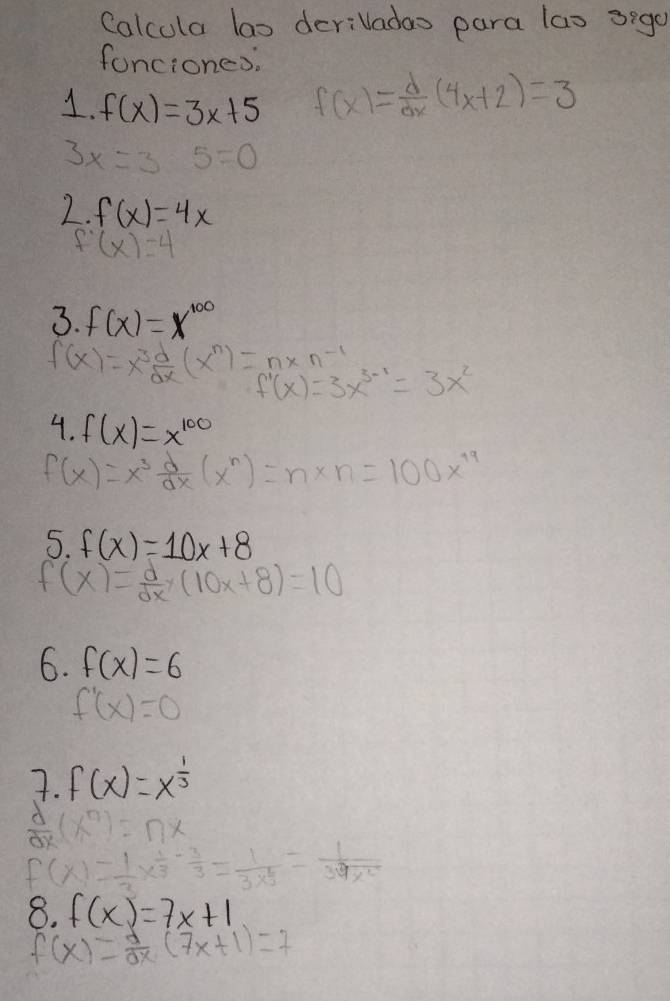 Calcula las derivadas para las sigu
funciones:
1. f(x)=3x+5 f(x)=d/dx(4x+2)=3
3x=3 5=0
2. f(x)=4x
f'(x)=4
3. f(x)=x¹⁰⁰
f(x)=x³ d/dx(xⁿ)=n×n⁻¹
f'(x)=3x³⁻¹=3x²
4. f(x)=x¹⁰⁰
f(x)=x³ d/dx(xⁿ)=n×n=100x⁹⁹
5. f(x)=10x+8
f(x)=d/dx(10x+8)=10
6. f(x)=6
f'(x)=0
7. f(x)=x^(1/3)
d/dx(xⁿ)=nx
f(x)=1/3x^(1/3-3/3)=
8. f(x)=7x+1
f(x)=d/dx(7x+1)=7